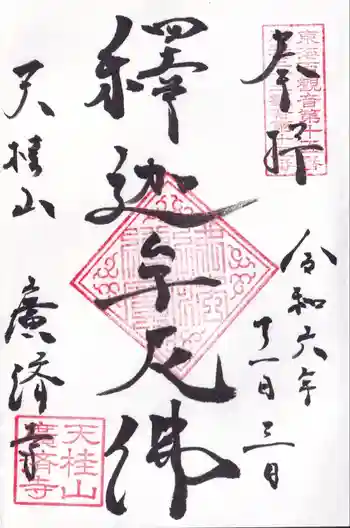 奉拝
令和六年
十一月三日
釋迦牟尼佛
天桂山
廣済寺
天桂山
廣済寺